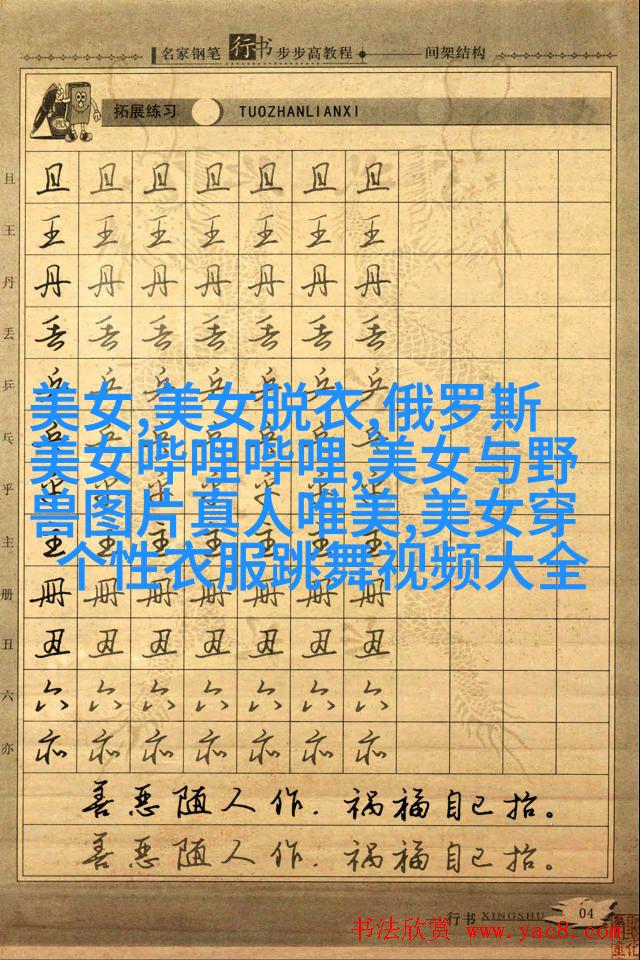 名家钢笔 行书 步步高教程 间架结构
拓展练习 TUOZHANLIANXI
且 且 且 且 且 且 且 且
王 王 王 王 王 王 王 王
丹 丹 丹 丹 丹 丹 丹 丹
丢 丢 丢 丢 丢 丢 丢 丢
乒 乒 乒 乒 乒 乒 乒 乒
美女,美女脱衣,俄罗斯
乓 乓 乓 乓 乓 乓 乓 乓
美女哔哩哔哩,美女与野
乎 乎 乎 乎 乎 乎 乎 乎
兽图片真人唯美,美女穿
主 主 主 主 主 主 主 主
个性衣服跳舞视频大全
册 册 册 册 册 册 册 册
丑 丑 丑 丑 丑 丑 丑 丑
六 六 六 六 六 六 六 六
亦 亦 亦 亦 亦 亦 亦 亦
善恶随人作,祸福自己招。
善恶随人作,祸福自己招。
行书 XINGSHU 04
书法欣赏 www.yac8.com